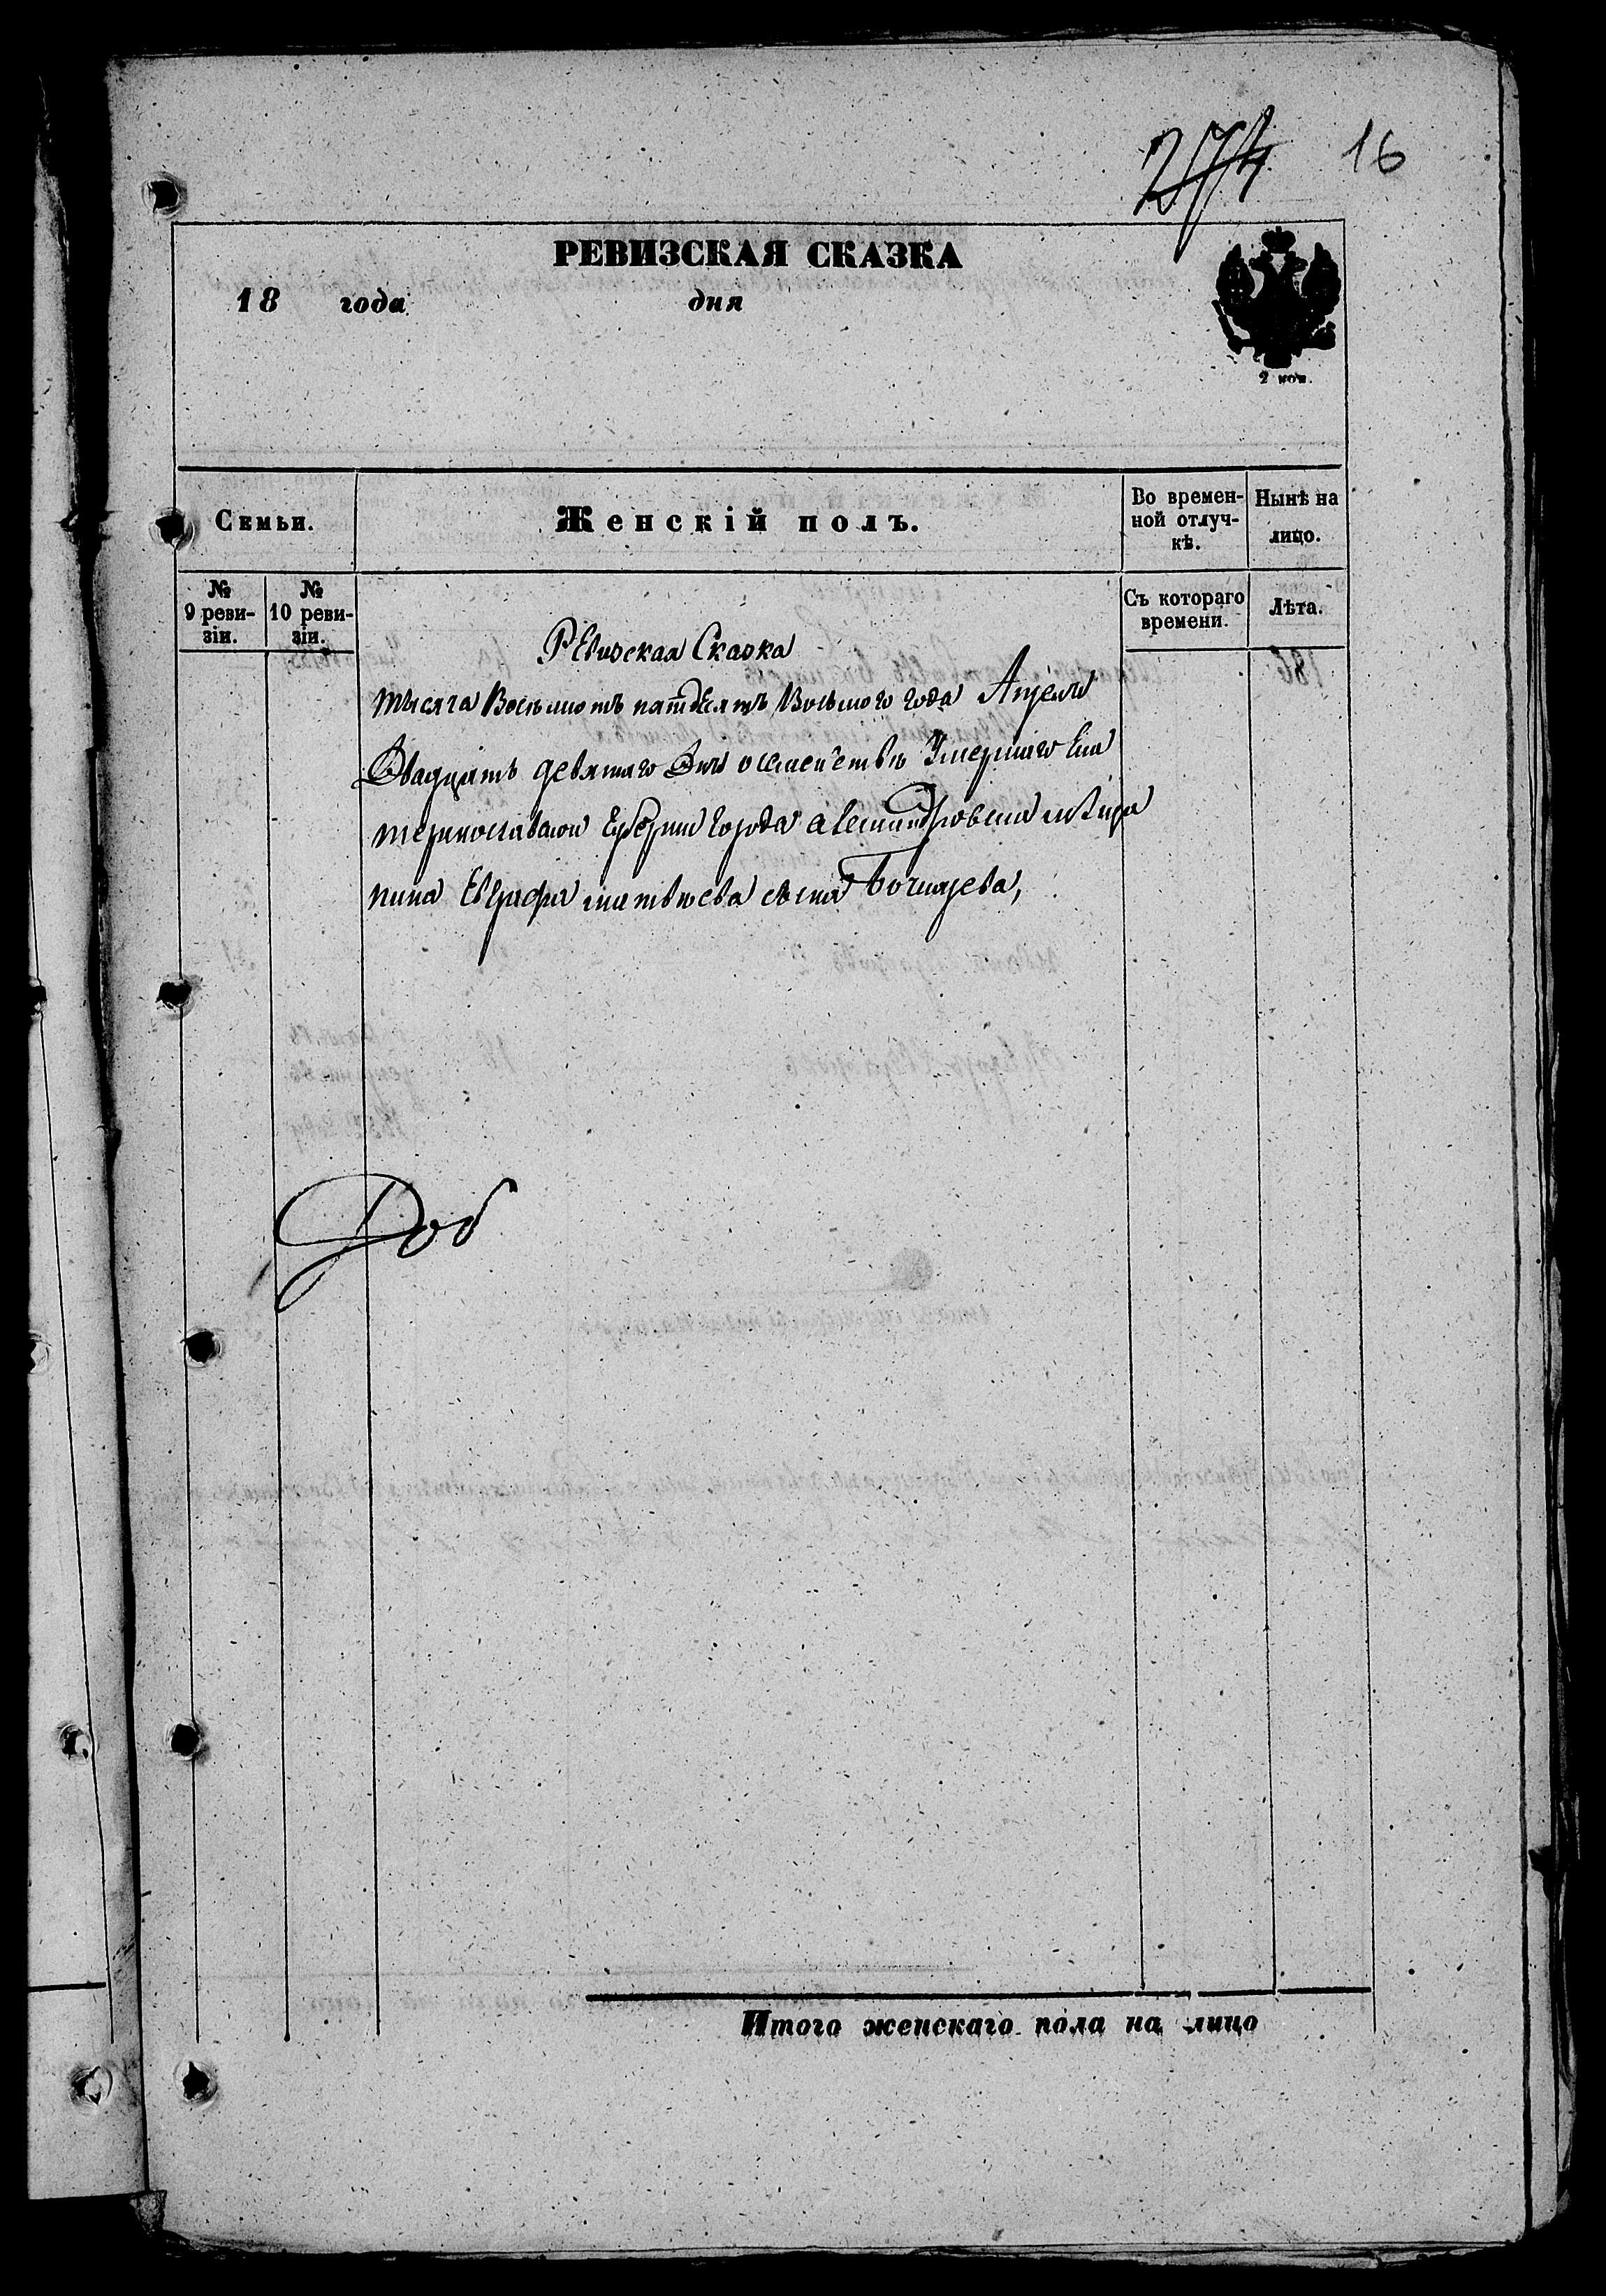 274 16
РЕВИЗСКАЯ СКАЗКА
18 года дня
2 коп.
Семьи.
Женскій полъ.
Во времен-
ной отлуч-
кѣ.
Нынѣ на
лицо.
№
9 реви-
зіи.
№
10 реви-
зіи.
Съ котораго
времени.
Лѣта.
Ревизская Сказка
тысяча Восемьсотъ пятдесятъ Восьмого года Апреля
Двадцать девятаго Дня о семействѣ Умершаго Ека
теринославской Губерніи города александровска мѣща
нина Евграфа матвѣева сына
Доб
Итого женскаго пола на лицо